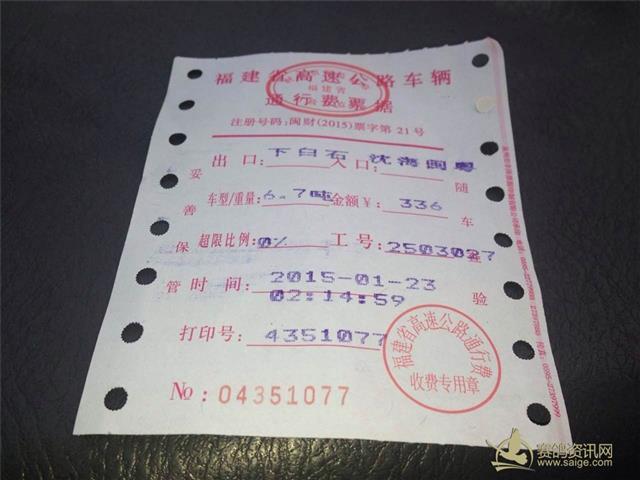 福建省高速公路车辆
福建省
通行费票据
注册号码:闽财(2015)票字第 21 号
出口:下白石 入口:沈海闽粤
车型/重量:6.7吨 金额¥:336
超限比例:0% 工号:2503027
时间:2015-01-23
02:14:59
打印号:4351077
№:04351077
妥善保管
随车 验
福建省高速公路通行费
收费专用章
赛鸽资讯网
www.saige.com